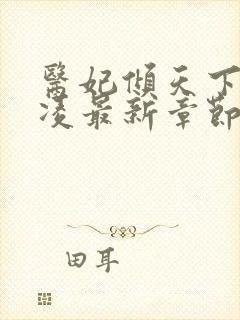 醫妃傾天下
凌最新章節
田耳